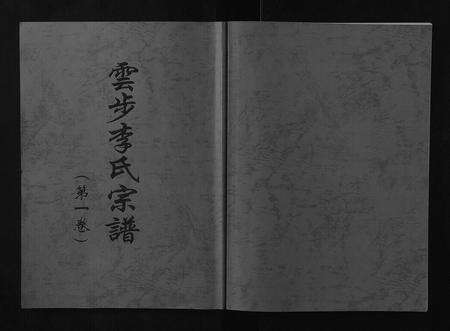 雲步李氏宗譜
(第一卷)